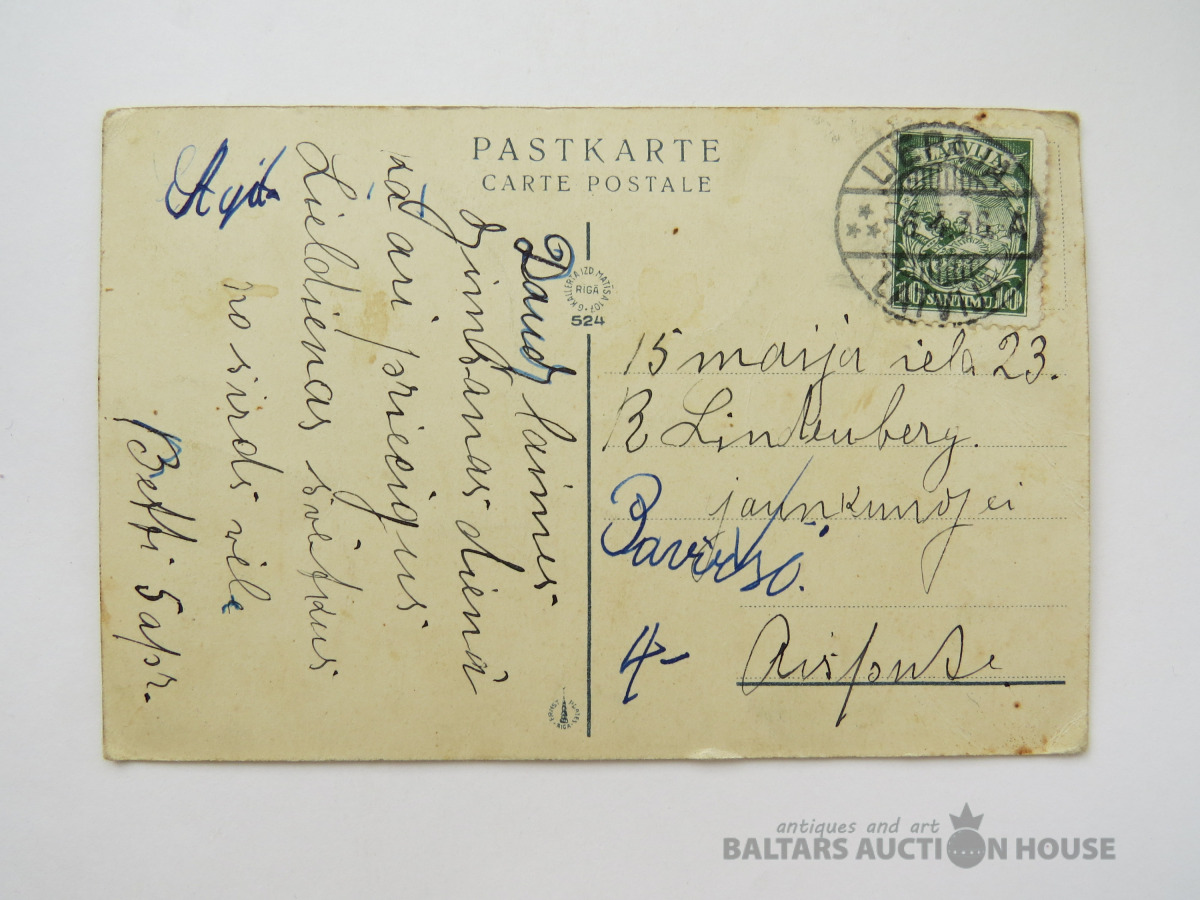 PASTKARTE
CARTE POSTALE
Daudz laimes
dzimšanas dienā
kā arī priecīgus
Lieldienas svētkus
no sirds vēle
Betti 5 apr.
G. KALLERTA IZD. MATĪSA 107
RĪGĀ
524
LATVIJA
10 SANTIMU 10
15 maija iela 23.
R Lintenberg.
jaunkundzei
4-
Aispute
antiques and art
BALTARS AUCTION HOUSE